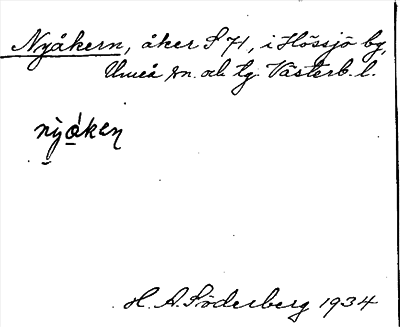 Nyåkern, åker S 71, i Hössjö by,
Umeå sn. och tg. Västerb. l.
ny̱ȧ̱ken
H. A. Söderberg 1934